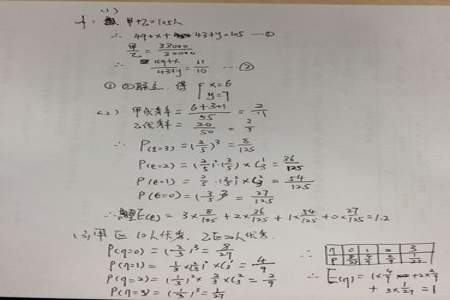 (1)
甲+乙=105人
∴ 49+x+43+y=105 …①
甲/乙 = 33000/30000
∴ (49+x)/(43+y) = 11/10 …②
①②联立,得 { x=6
y=7
(2) 甲优秀率 = (6+3+1)/55 = 2/11
乙优秀率 = 20/50 = 2/5
∴ P(ξ=3) = (2/5)³ = 8/125
P(ξ=2) = (2/5)²·(3/5)×C₃² = 36/125
P(ξ=1) = 2/5·(3/5)²×C₃² = 54/125
P(ξ=0) = (3/5)³ = 27/125
∴ E(ξ) = 3×8/125+2×36/125+1×54/125+0×27/125=1.2
(3) 10人优秀,乙20人优秀.
P(η=0) = (2/3)³ = 8/27
P(η=1) = 1/3×(2/3)²×C₃¹ = 4/9
P(η=2) = (1/3)²×2/3×C₃² = 2/9
P(η=3) = (1/3)³ = 1/27
∴ η 0 1 2 3
P 8/27 4/9 2/9 1/27
∴ E(η) = 1×4/9+2×2/9
+3×1/27=1